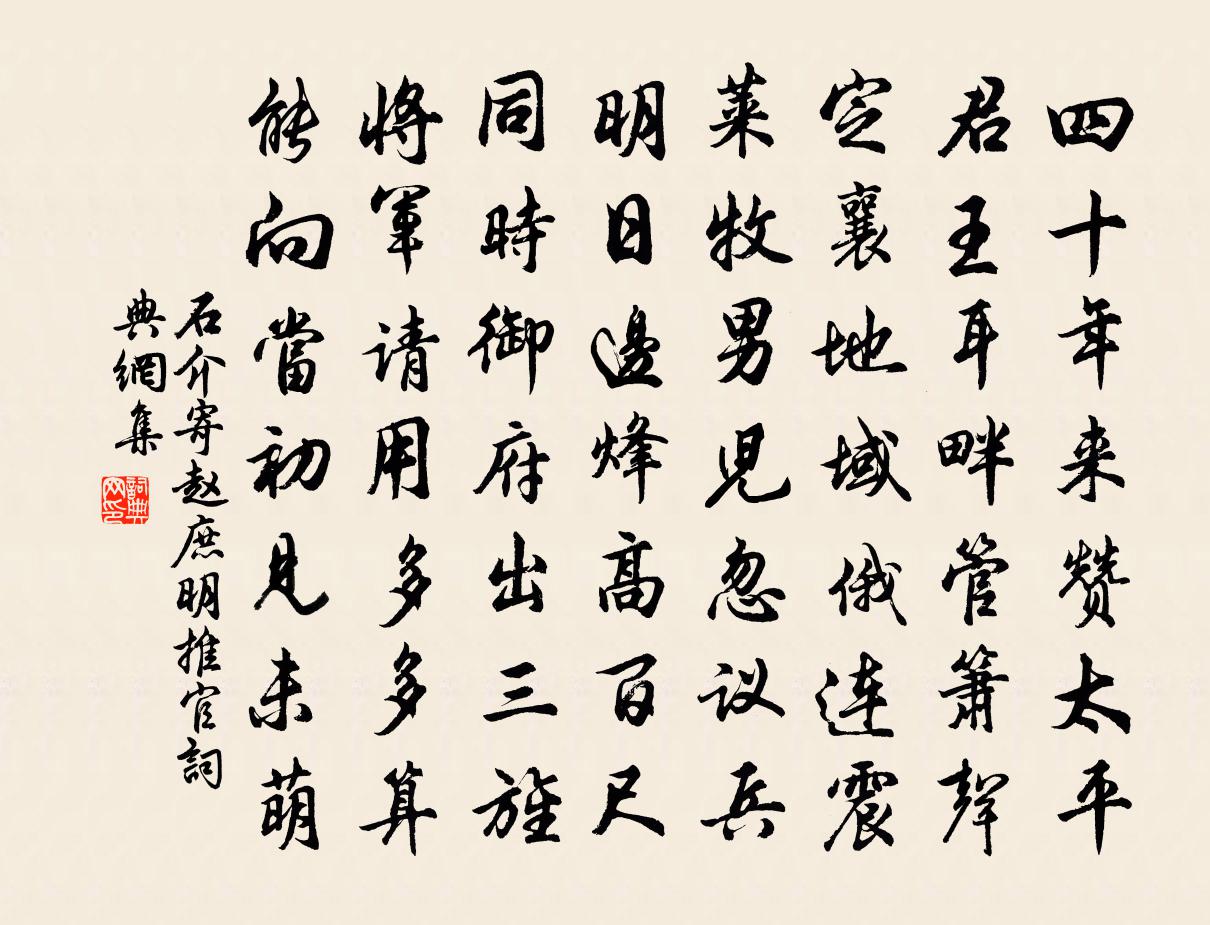 四十年来赞太平
君王耳畔管箫聲
定襄地域俄连震
莱牧男児忽议兵
明日邊烽高百尺
同時御府出三旌
將軍请用多多算
能向當初见未萌
石介寄赵庶明推官詞
典網集
詞典
网印